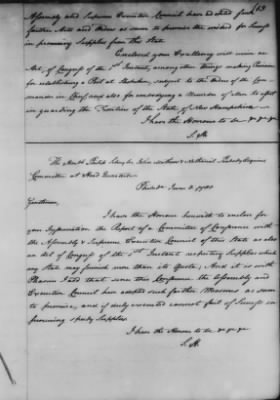 163
Assembly and Supreme Executive Council have adopted such
further Acts and Orders as seem to promise the wished for Success
in procuring Supplies from this State
Enclosed your Excellency will receive an
Act of Congress of the 1st Instant, among other things making Provision
for establishing a Post at Coos, subject to the Orders of the Com-
mander in Chief and also for employing a Number of Men to assist
in guarding the Frontiers of the State of New Hampshire
I have the Honour to be &c &c
S. H.
The Honble Philip Schuyler John Mathews & Nathaniel Peabody Esquires
Committee at Head Quarters
Philada June 3. 1780
Gentlemen,
I have the Honour herewith to enclose for
your Information the Report of a Committee of Conference with
the Assembly & Supreme Executive Council of this State as also
an Act of Congress of the 1st Instant respecting Supplies which
any State may furnish more than its Quota; And it is with
Pleasure I add that since this Conference the Assembly and
Executive Council have adopted such further Measures as seem
to promise, and if duly executed cannot fail of Success in
procuring speedy Supplies.
I have the Honour to be &c &c &c
S. H.